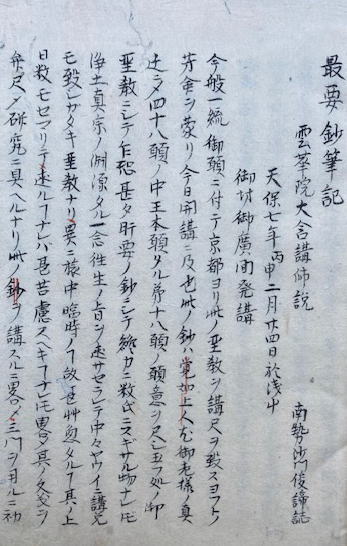 最要鈔筆記
雲華院大含講師説
天保七年丙申二月廿四日於浅草
御坊御廣間発講
南勢沙門俊諦誌
今般一統御頭ニ付テ京都ヨリ此ノ聖教ヲ講尺ヲ致スヨフトノ
芳命ヲ蒙リ今日開講ニ及也此ノ鈔ハ覚如上人
四十八願ノ中王本願タル第十八願ノ願意ヲ
聖教ニシテ乍恐甚タ肝要ノ鈔ニシテ纔カニ数氏ニスギサル物ナレ𪜈
浄土真宗ノ淵源タル一念往生ノ旨ヲ速サセラレテ中々ヤウイニ講究
モ致シガタキ聖教ナリ旅中臨時ノ故甚艸卒タルヿ其ノ上
日数モセマリテ速ルヿナレハ甚苦慮スヘキヿナレ𪜈畧〆其ノ文ヲ
弁尺〆研究ニ具ヘルナリ此ノ鈔ヲ講スルニ畧〆三門ヲ用ル初